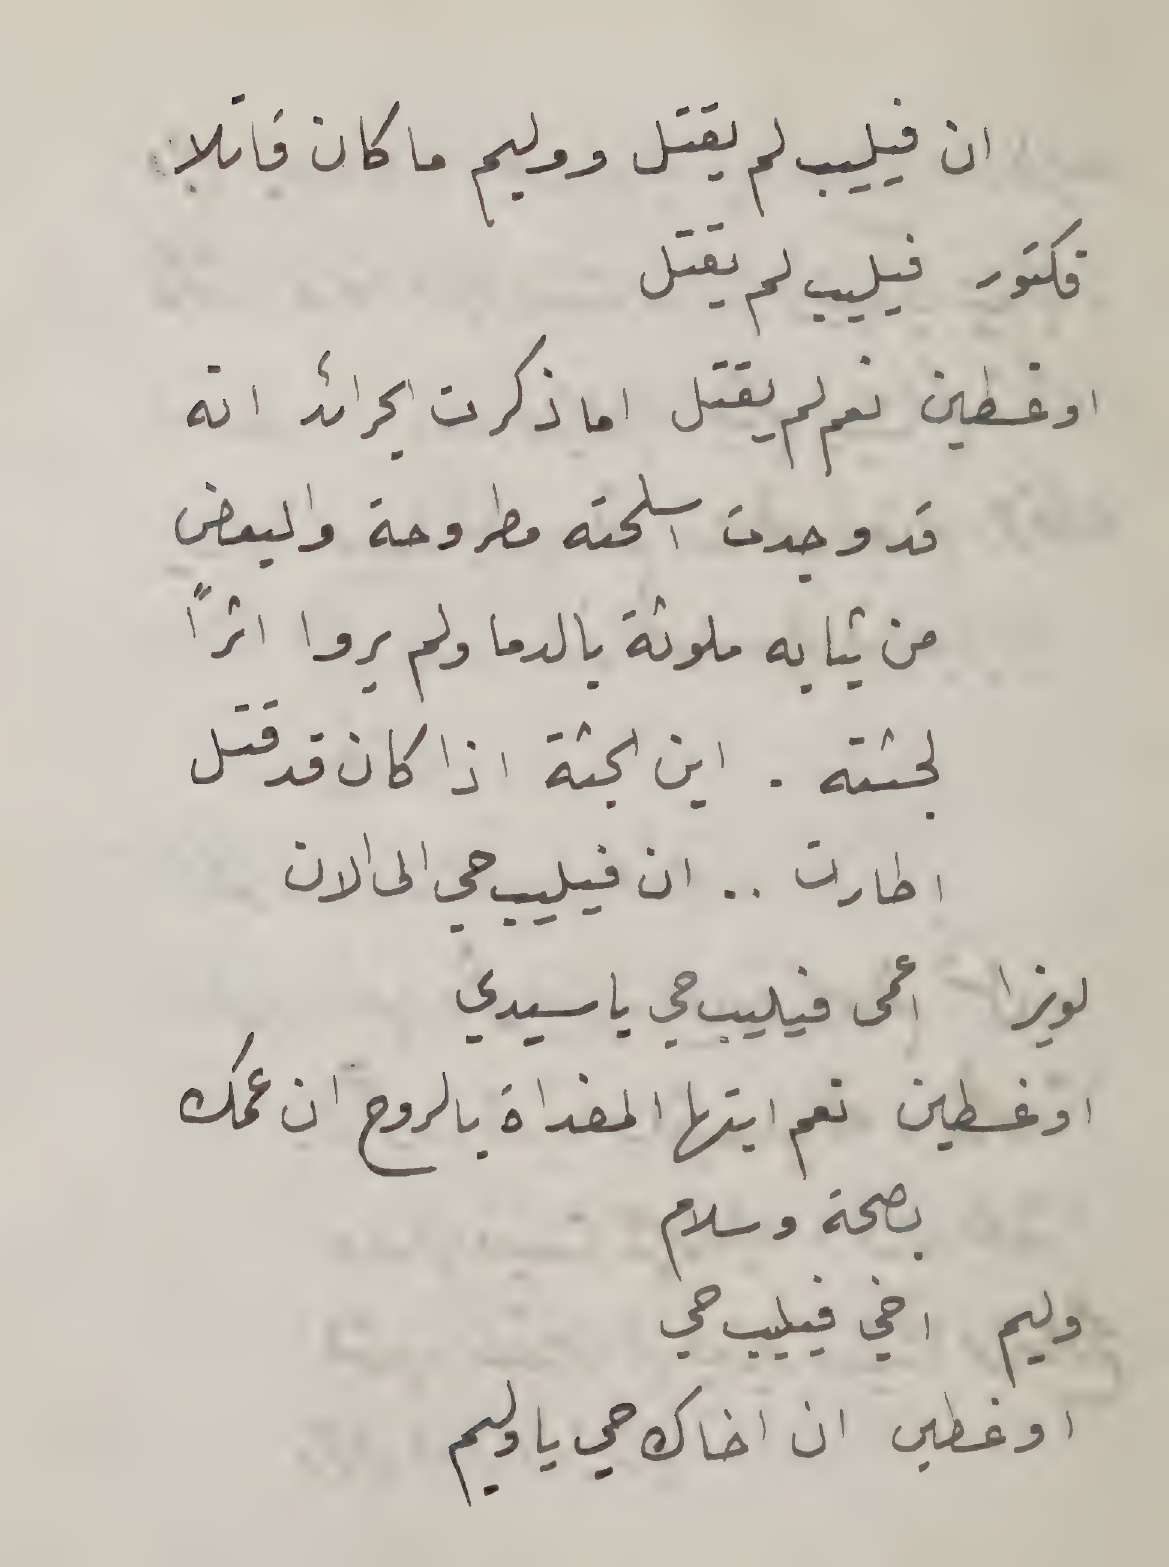 ان فيليب لم يقتل ووليم ما كان قاتلا
فكتور فيليب لم يقتل
اوغسطين نعم لم يقتل اما ذكرت الجرائد انه
قد وجدت اسلحته مطروحة والبعض
من ثيابه ملوثة بالدما ولم يروا اثراً
لجثته . اين الجثة اذا كان قد قتل
اطارت .. ان فيليب حي الى الان
لويزا اعمى فيليب حي يا سيدي
اوغسطين نعم ايتها المفداة بالروح ان عمك
بصحة وسلام
وليم اخي فيليب حي
اوغسطين ان اخاك حي يا وليم